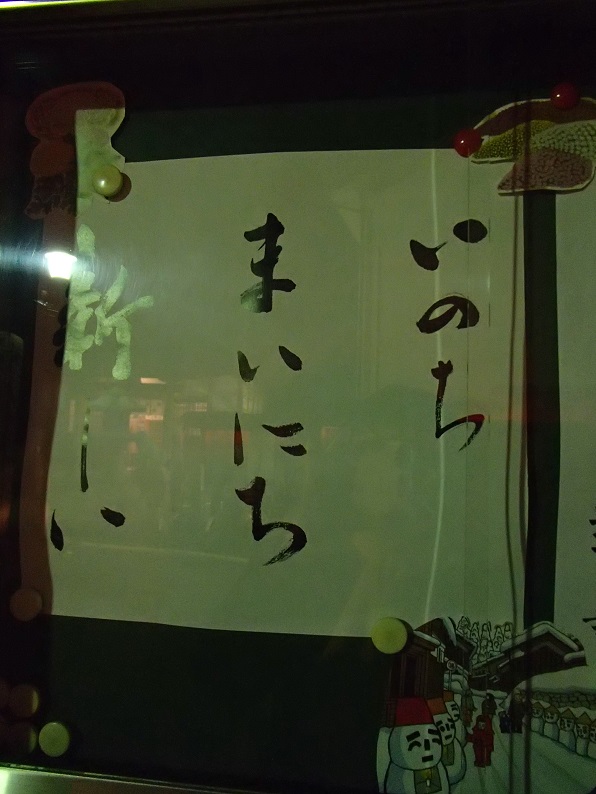 いのち
まいにち
新しい